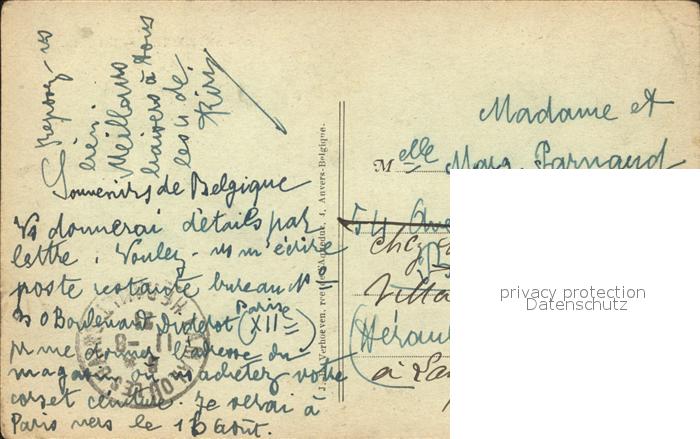 Reposez-vs
bien.
Meilleurs
baisers à tous
les 4 de.
Souvenirs de Belgique
Vs donnerai détails par
lettre. Voulez-vs m'écrire
poste restante bureau N°
30 Boulevard Diderot (Paris XIIe)
pr me donner l'adresse du
magasin où vs achetez votre
corset ceinture. Je serai à
Paris vers le 16 Août.
Verhoeven, rue de l'Aqueduc, 4, Anvers-Belgique.
Madame et
Melle Marg. Parnaud
54
chez
Villa
(Hérau
à La
privacy protection
Datenschutz